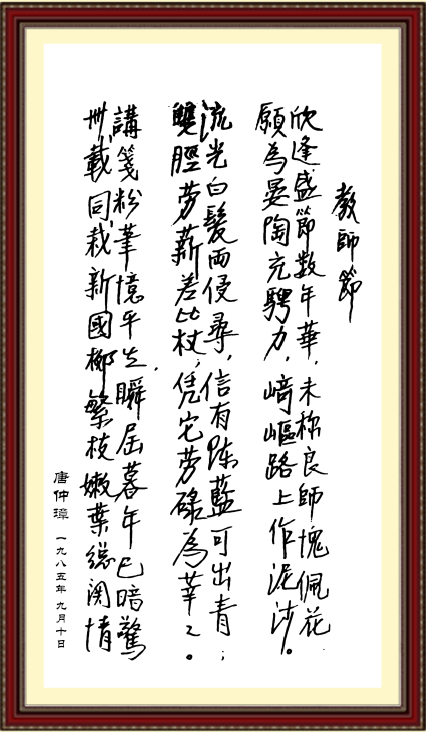 教師節
欣逢盛節数年華，未称良師愧佩花
願為晏陶充騁力，崎嶇路上作泥沙。
流光白髮两侵尋，信有陈藍可出青；
雙脛劳薪差比杖，凭它劳碌為莘々。
講箋粉筆憶平生，瞬屆暮年已暗驚
卅載同栽新國柳繁枝嫩葉總関情
唐仲璋 一九八五年九月十日